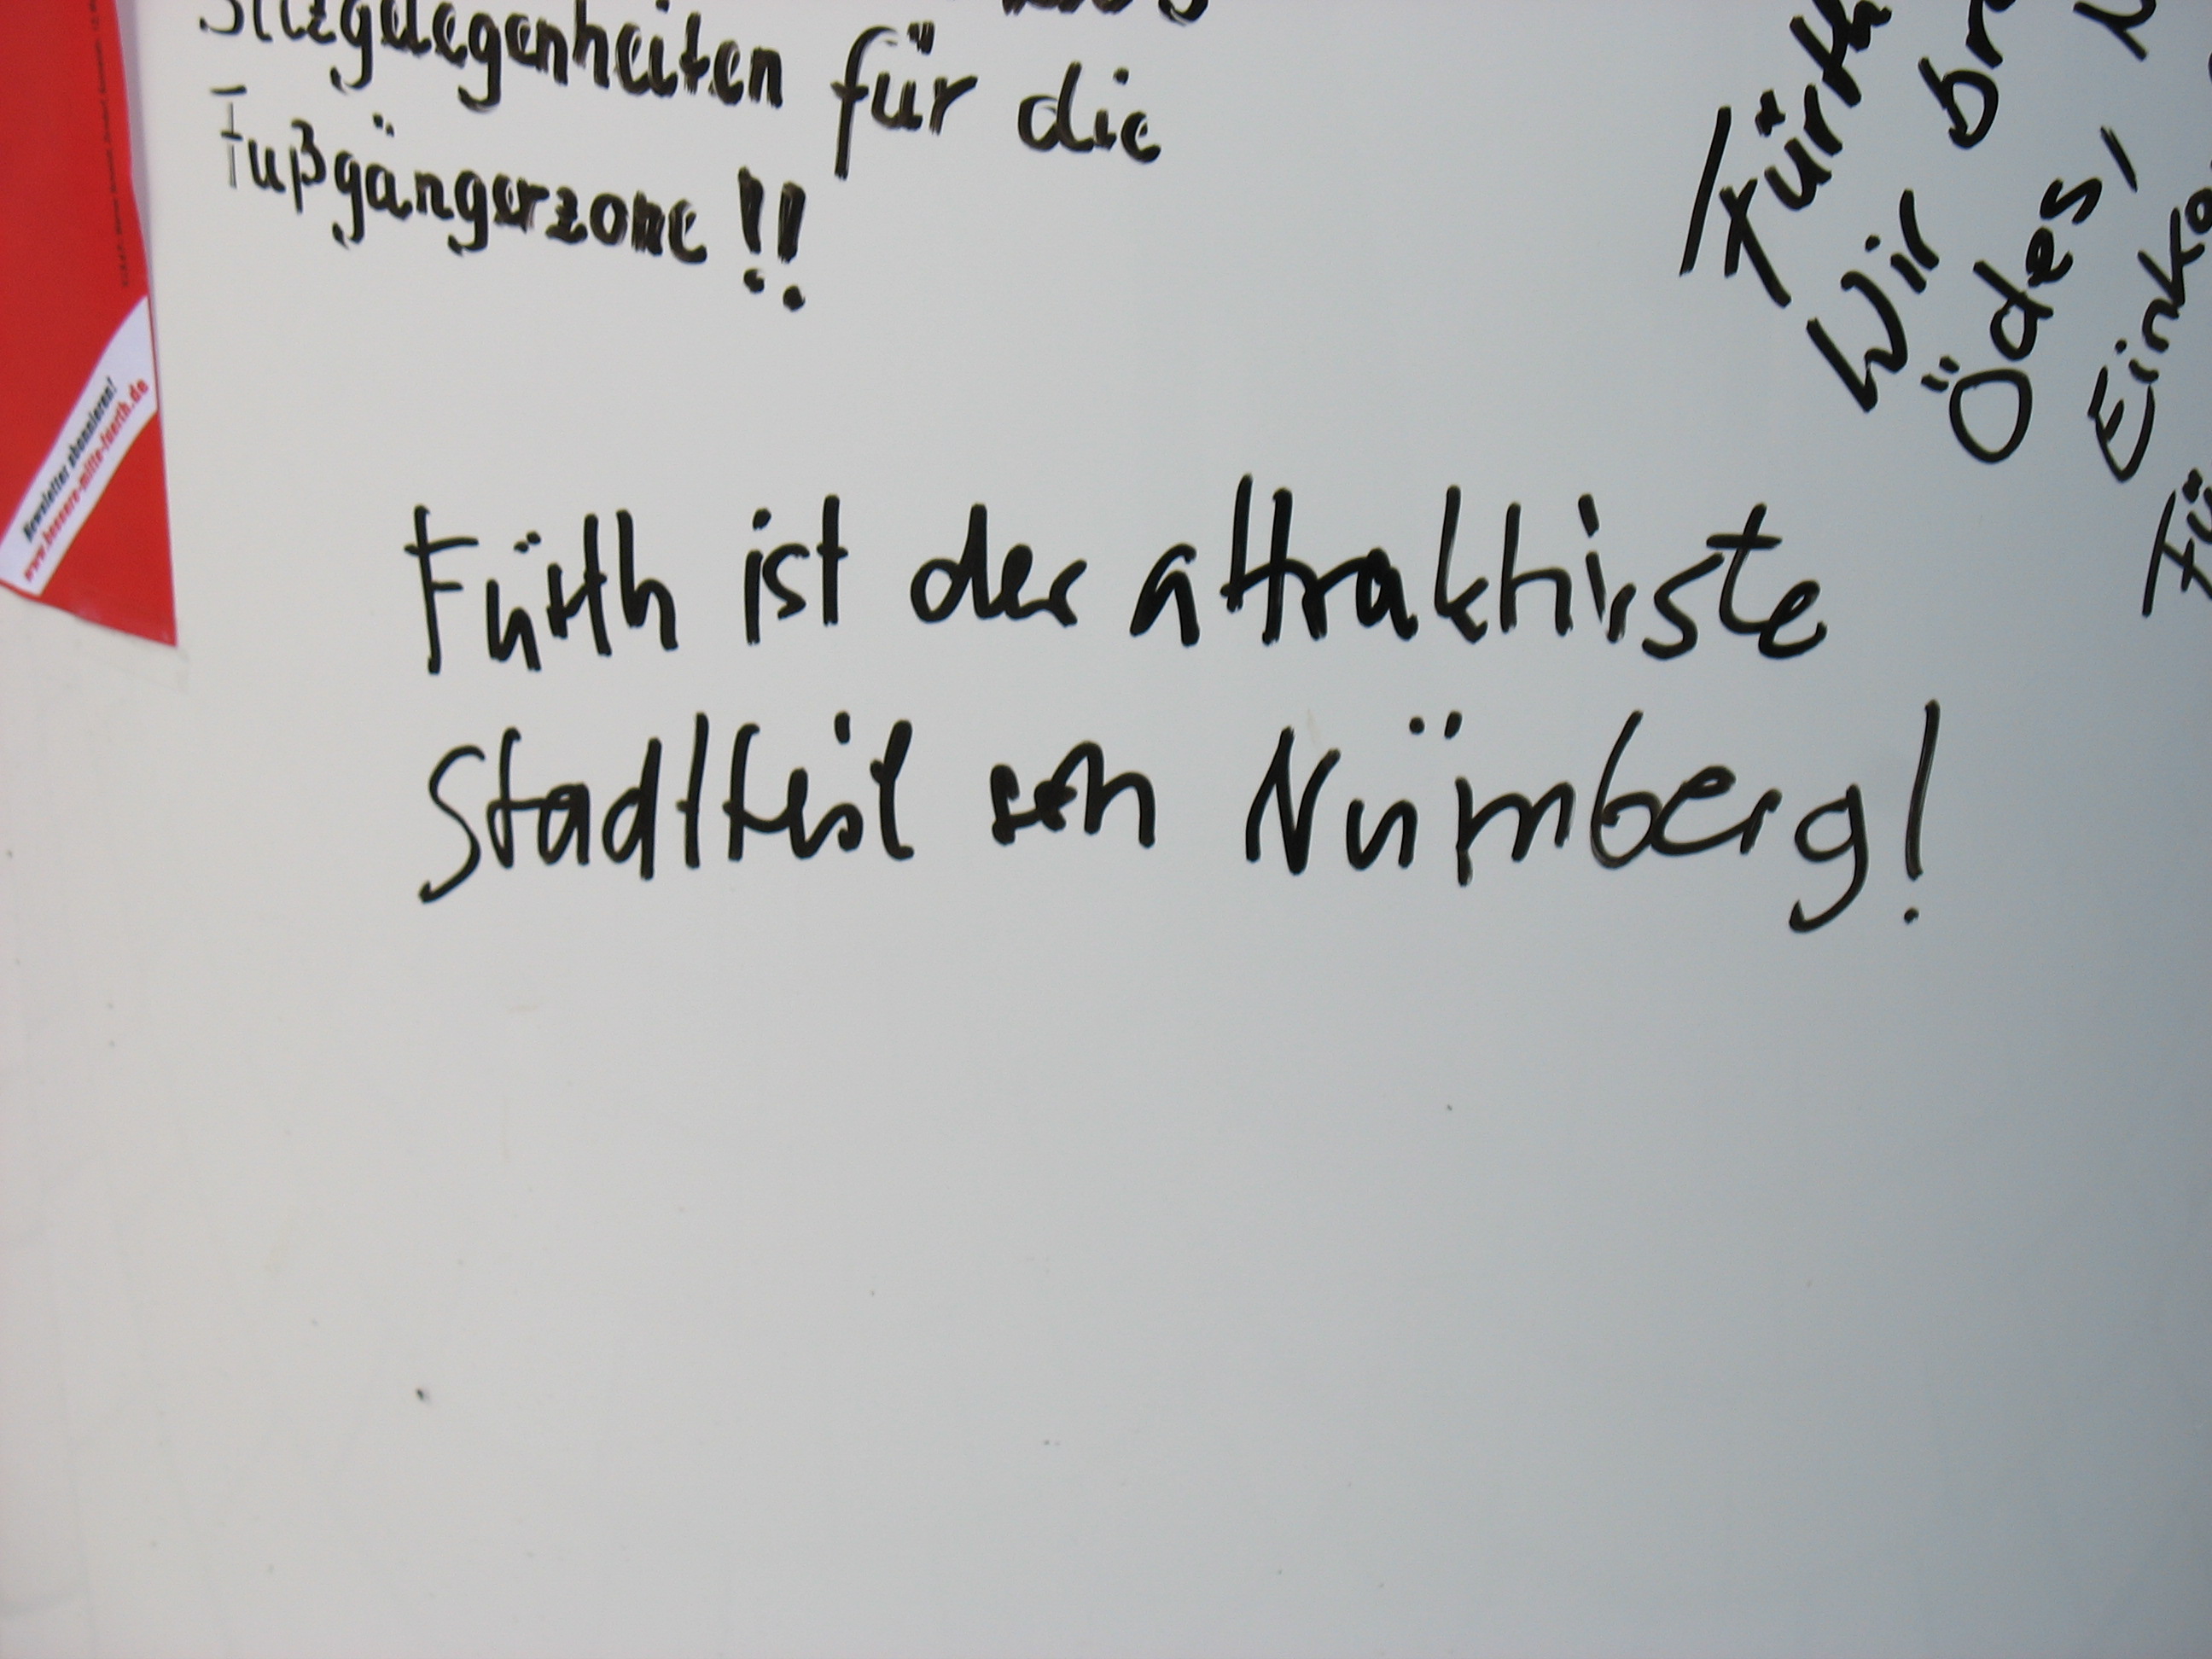 Sitzgelegenheiten für die
Fußgängerzone !!
Fürth ist der attraktivste
Stadtteil von Nürnberg!
Fürth
Wir
Ödes,
Newsletter abonnieren!
www.bessere-mitte-fuerth.de